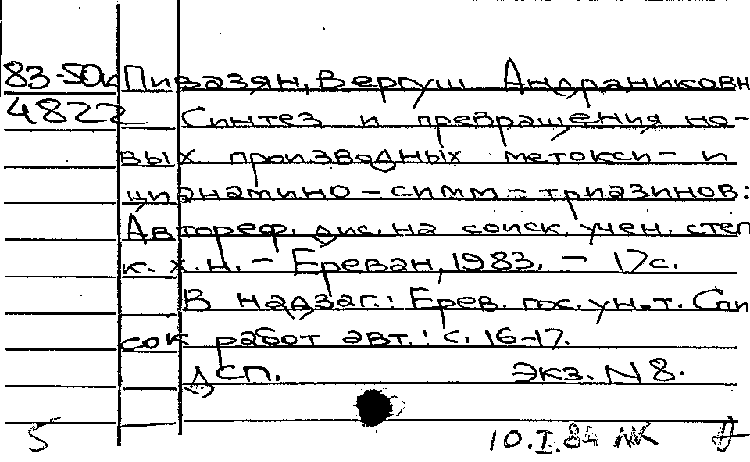 83-50к Пивазян, Вергуш Андраниковн
4822 Синтез и превращения но-
вых производных метокси- и
цианамино-симм-триазинов:
Автореф. дис. на соиск. учен. степ
к. х. н. - Ереван, 1983. - 17с.
В надзаг.: Ерев. гос. ун-т. Спи
сок работ авт.: с. 16-17.
Дсп. Экз. N 8.
5 10.I.84